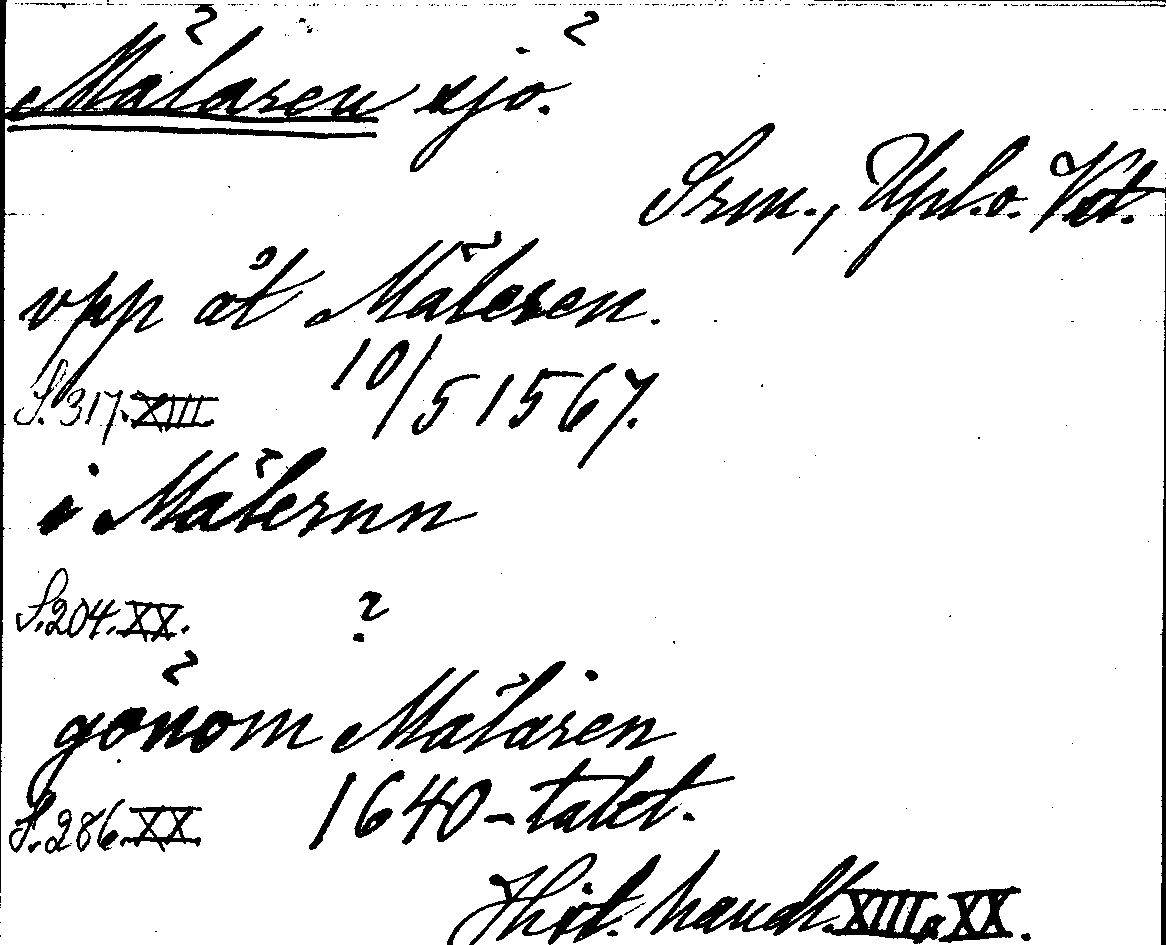 Mälaren sjö.
Srm., Upl. o. Vst.
vpp åt Mäleren.
S. 317. XIII. 10/5 1567.
i Mälernn
S. 204. XX. ?
gönom Mälaren
S. 286. XX. 1640-talet.
Hist. handl. XIII, XX.